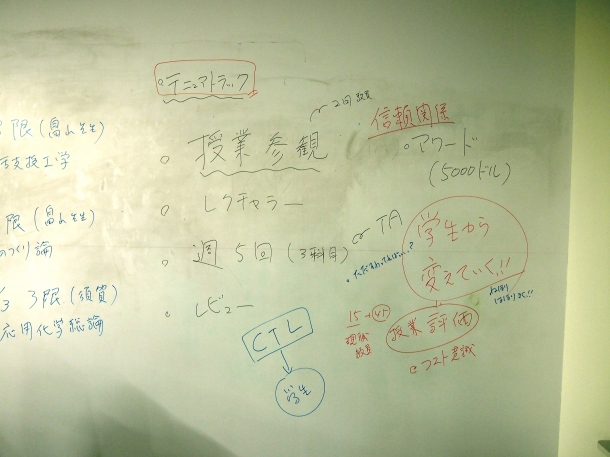 限(畠山先生)
支援工学
限(畠山先生)
づくり論
3限(須賀)
応用化学総論
テニュアトラック
授業参観
2回
レクチャラー
週5回(3科目)
レビュー
CTL
学生
信頼関係
アワード
(5000ドル)
TA
学生から
変えていく!!
15→45
授業評価
コスト意識